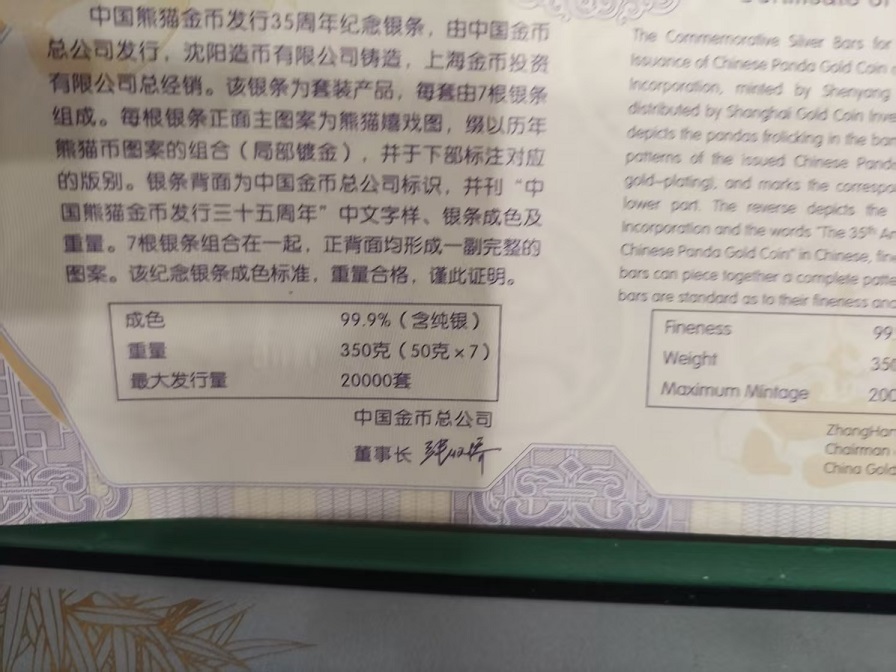 中国熊猫金币发行35周年纪念银条，由中国金币
总公司发行，沈阳造币有限公司铸造，上海金币投资
有限公司总经销。该银条为套装产品，每套由7根银条
组成。每根银条正面主图案为熊猫嬉戏图，缀以历年
熊猫币图案的组合（局部镀金），并于下部标注对应
的版别。银条背面为中国金币总公司标识，并刊“中
国熊猫金币发行三十五周年”中文字样、银条成色及
重量。7根银条组合在一起，正背面均形成一副完整的
图案。该纪念银条成色标准，重量合格，谨此证明。
成色 99.9%（含纯银）
重量 350克（50克×7）
最大发行量 20000套
中国金币总公司
董事长
The Commemorative Silver Bars for
Issuance of Chinese Panda Gold Coin
Incorporation, minted by Shenyang
distributed by Shanghai Gold Coin Inve
depicts the pandas frolicking in the bam
patterns of the issued Chinese Panda
gold-plating), and marks the correspo
lower part. The reverse depicts the
Incorporation and the words "The 35th An
Chinese Panda Gold Coin" in Chinese, fine
bars can piece together a complete patte
bars are standard as to their fineness and
Fineness 99
Weight 350
Maximum Mintage 200
ZhangHan
Chairman
China Gold